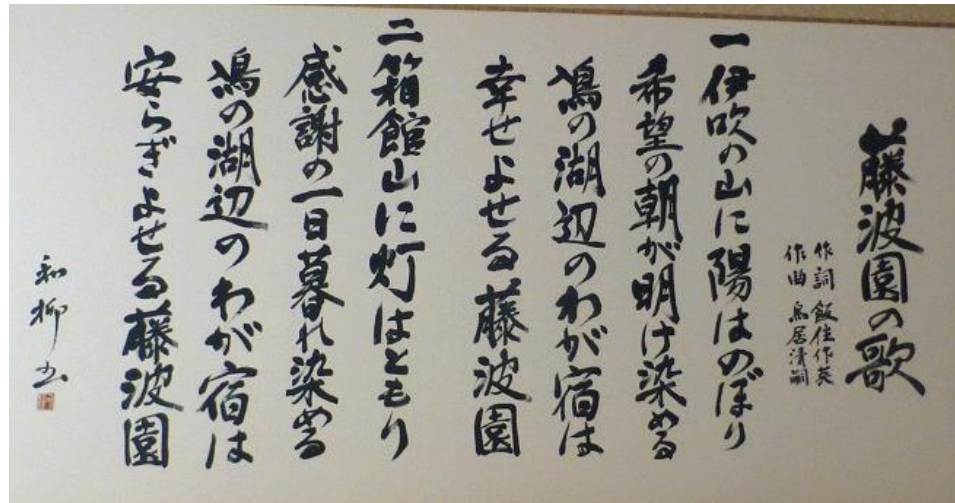 藤波園の歌
作詞 飯住作英
作曲 鳥居清嗣
一 伊吹の山に陽はのぼり
希望の朝が明け染める
鳰の湖辺のわが宿は
幸せよせる藤波園
二 箱館山に灯はともり
感謝の一日暮れ染める
鳰の湖辺のわが宿は
安らぎよせる藤波園
和柳书